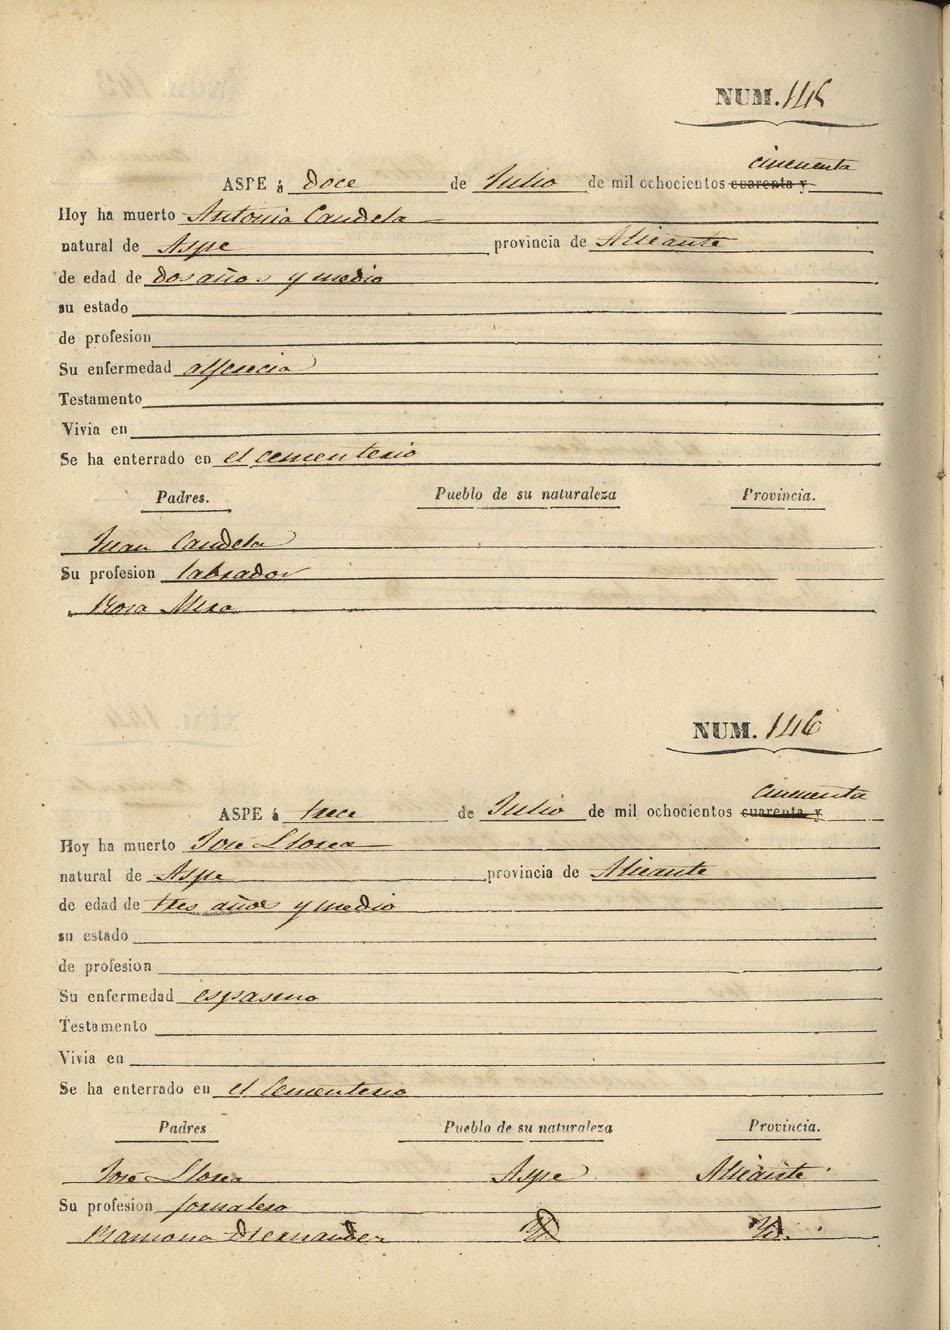 NUM. 145
cincuenta
ASPE á doce de Julio de mil ochocientos cuarenta y
Hoy ha muerto Antonia Candela
natural de Aspe provincia de Alicante
de edad de dos años y medio
su estado
de profesion
Su enfermedad alferecia
Testamento
Vivia en
Se ha enterrado en el cementerio
Padres. Pueblo de su naturaleza Provincia.
Juan Candela
Su profesion labrador
Rosa Mira
NUM. 146
cincuenta
ASPE á trece de Julio de mil ochocientos cuarenta y
Hoy ha muerto José Llorca
natural de Aspe provincia de Alicante
de edad de tres años y medio
su estado
de profesion
Su enfermedad espasmo
Testamento
Vivia en
Se ha enterrado en el Cementerio
Padres Pueblo de su naturaleza Provincia.
José Llorca Aspe Alicante
Su profesion jornalero
Ramona Hernandez Yd Yd.